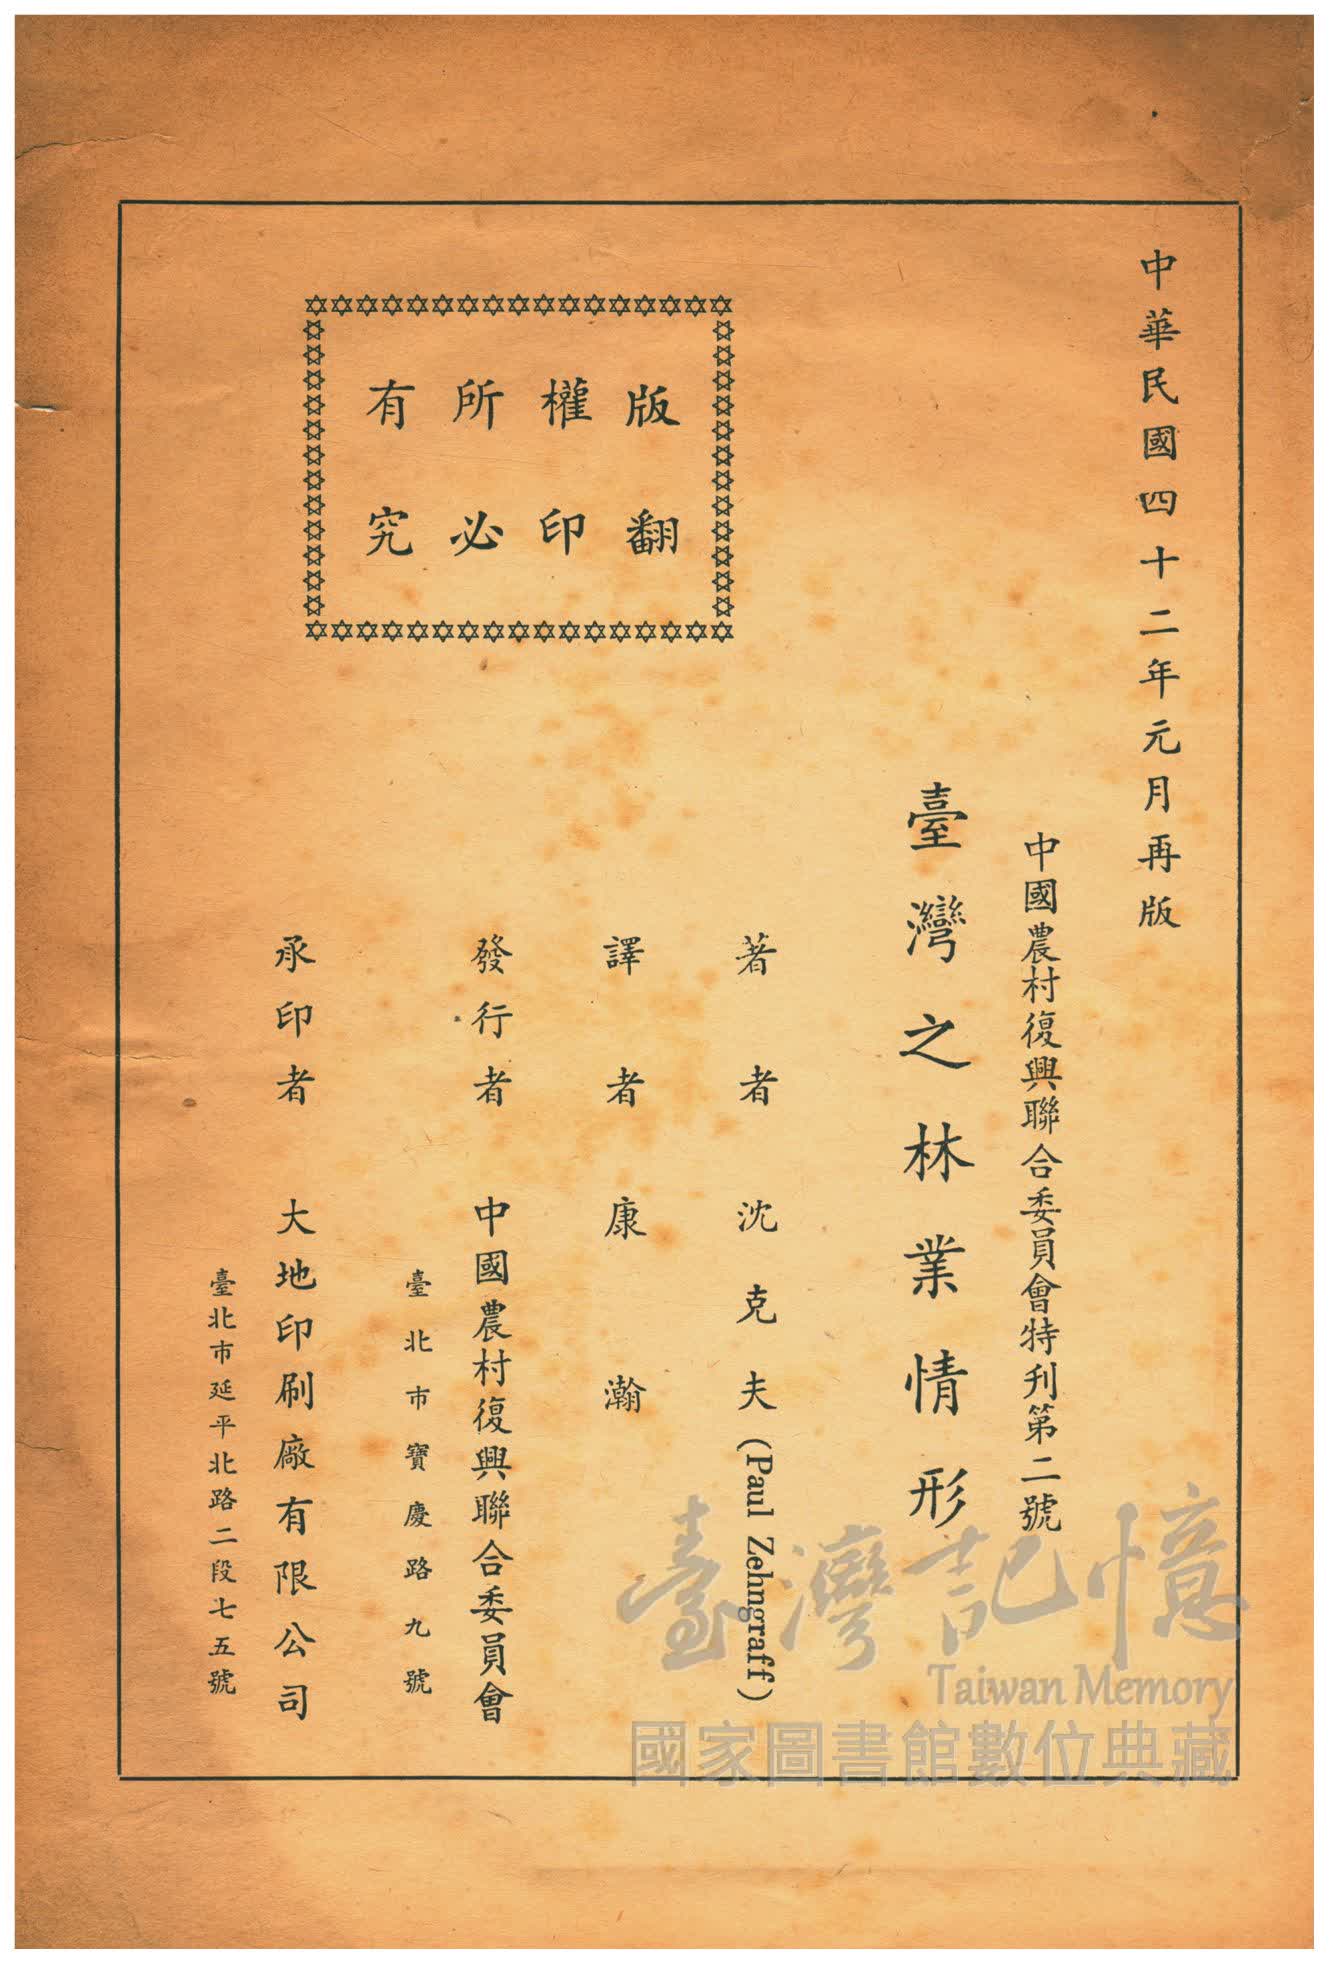 中華民國四十二年元月再版
中國農村復興聯合委員會特刊第二號
臺灣之林業情形
著者 沈克夫 (Paul Zehngraff)
譯者 康瀚
發行者 中國農村復興聯合委員會
臺北市寶慶路九號
承印者 大地印刷廠有限公司
臺北市延平北路二段七五號
版權所有
翻印必究
臺灣記憶
Taiwan Memory
國家圖書館數位典藏